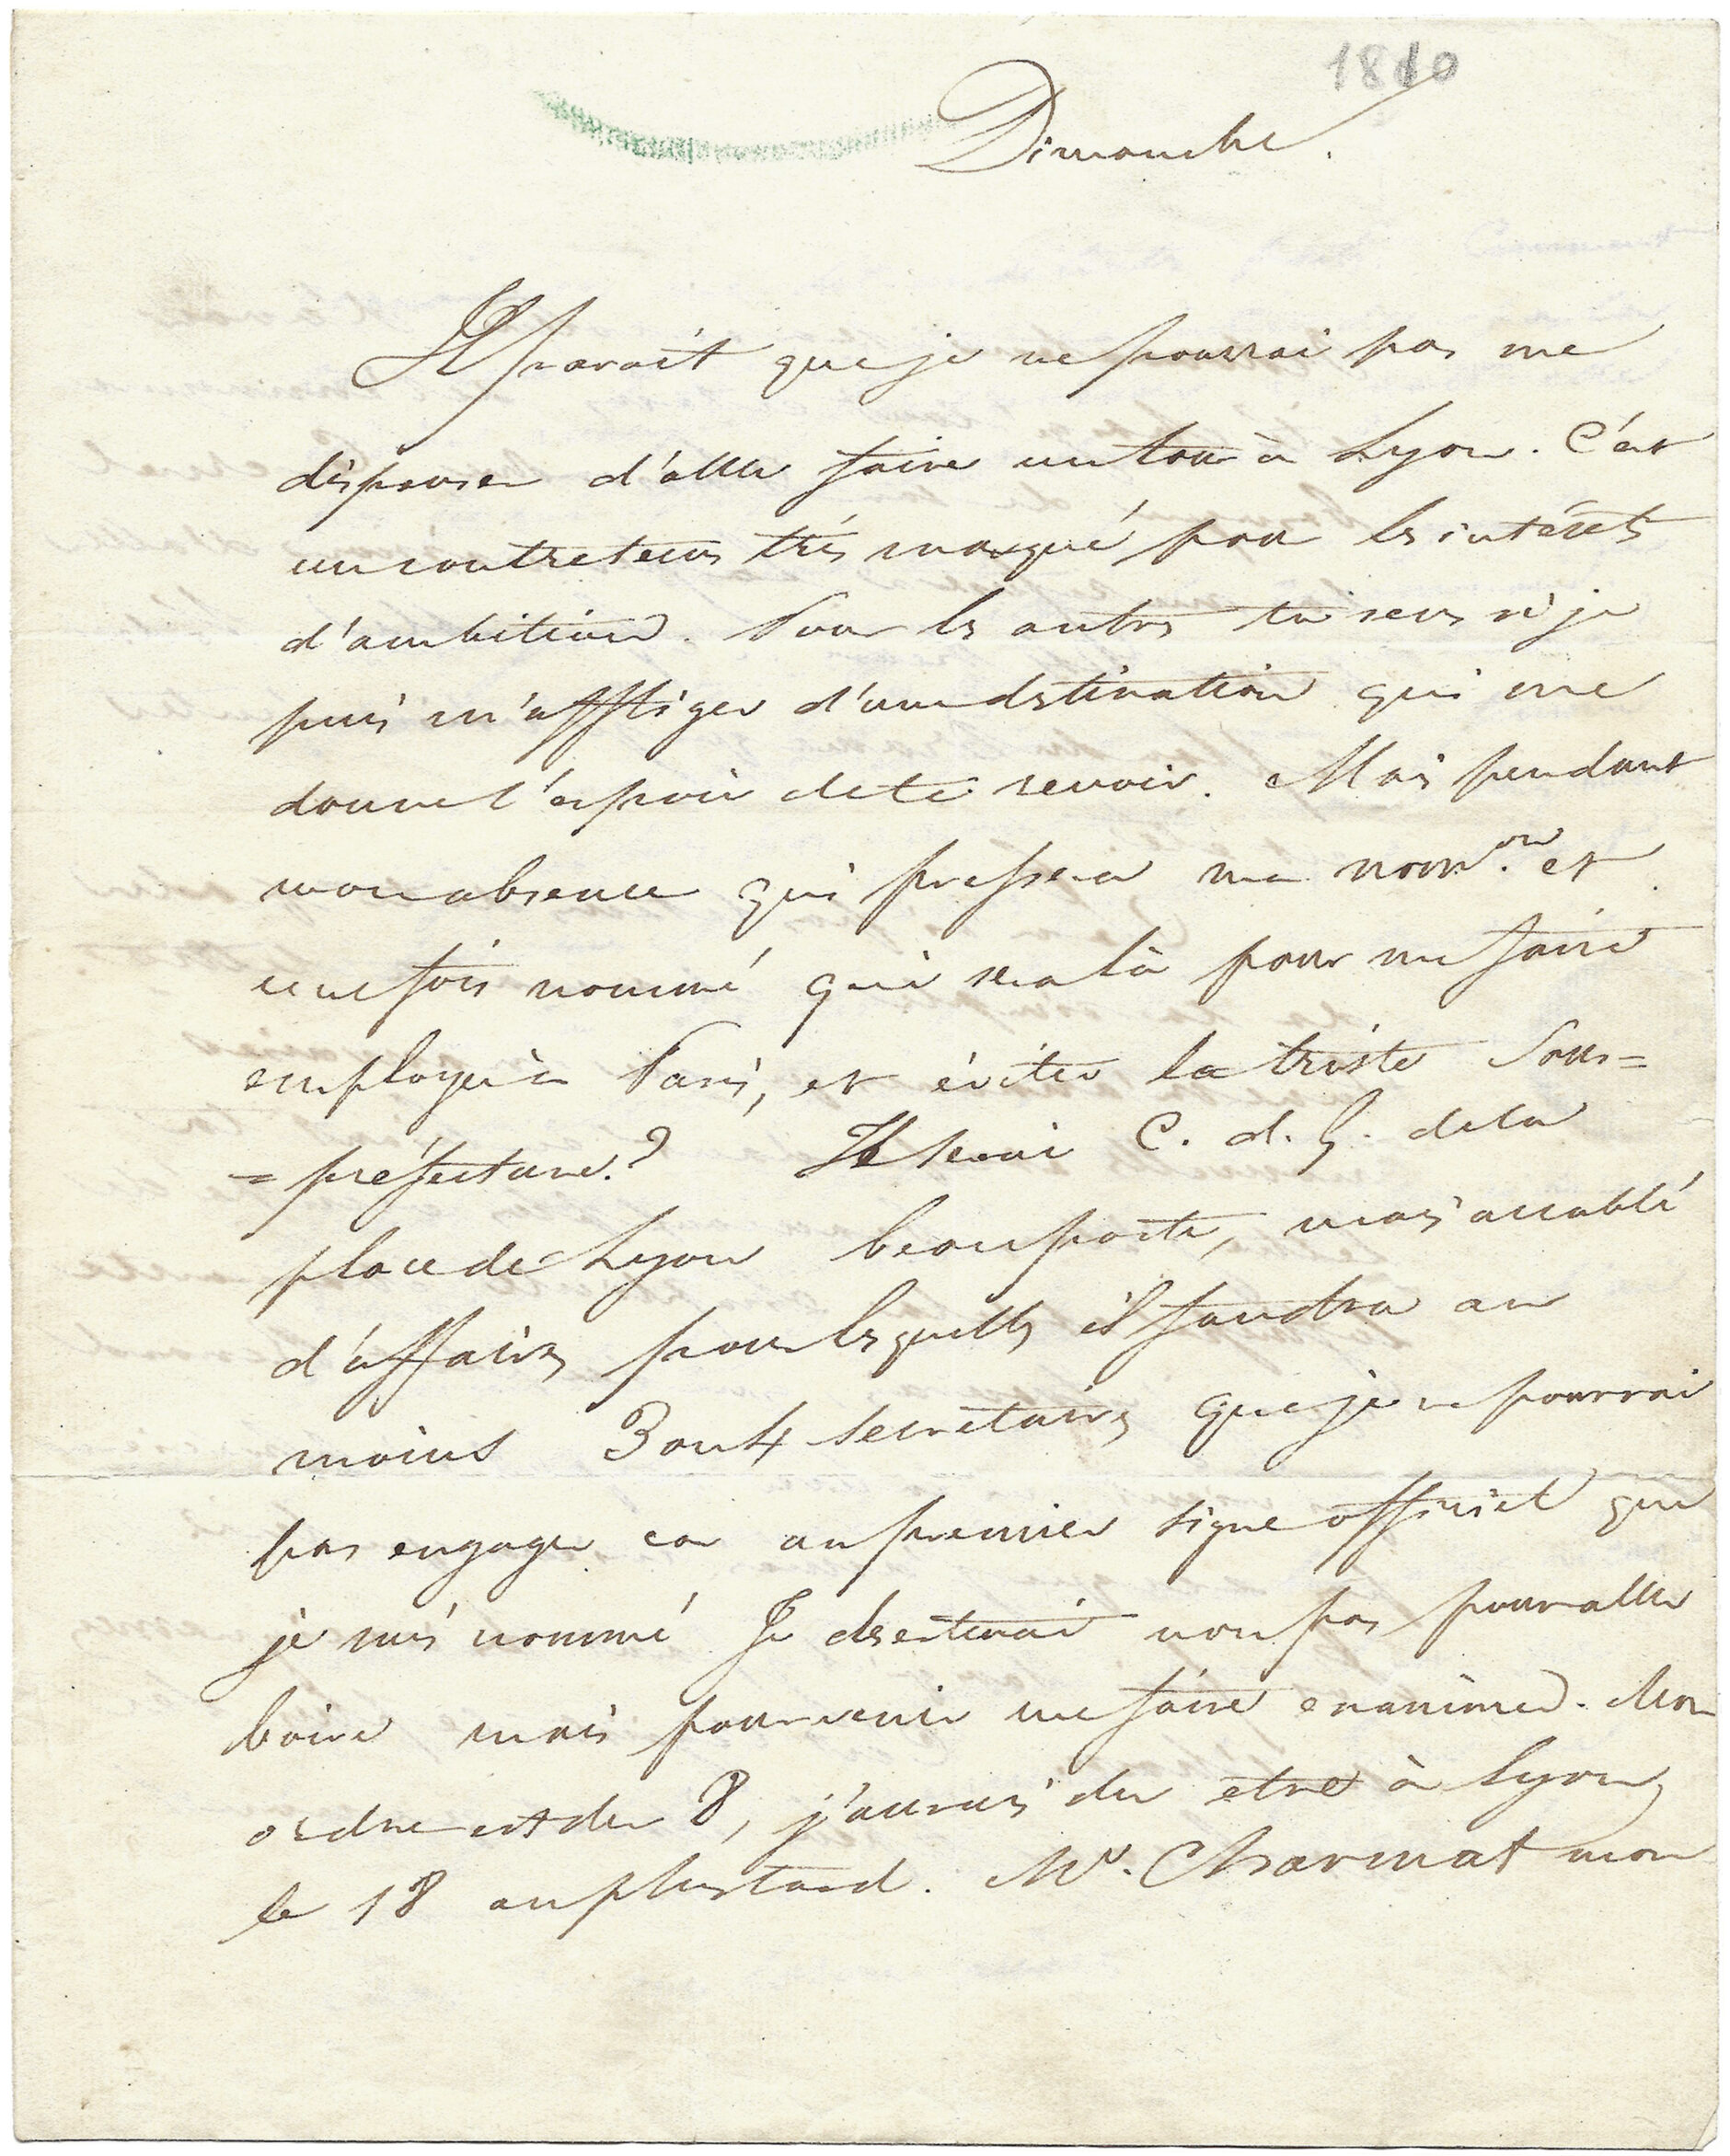 1810
Dimanche.
Il paroît que je ne pourrai pas me
dispenser d'aller faire un tour à Lyon. C'est
un contretems très marqué pour les intérêts
d'ambition. Pour les autres tu sens si je
puis m'affliger d'une destination qui me
donne l'espoir de te revoir. Mais pendant
mon absence qui pressera ma nom.on et
une fois nommé qui sera là pour me faire
employer à Paris, et éviter la triste Sous=
=préfecture.? Je serai C. d. G. de la
place de Lyon beau poste, mais accablé
d'affaires pour lesquelles il faudra au
moins 3 ou 4 secrétaires que je ne pourrai
pas engager car au premier signe officiel que
je suis nommé Je deserterai non pas pour aller
boire mais pour venir me faire examiner. Mon
ordre est du 8, j'aurais du etre à Lyon
le 18 au plus tard. Mr. Charmat mon